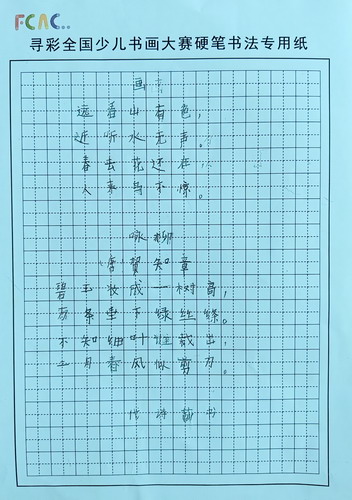 FCAC..
寻彩全国少儿书画大赛硬笔书法专用纸
画
远看山有色，
近听水无声。
春去花还在，
人来鸟不惊。
咏柳
唐 贺知章
碧玉妆成一树高，
万条垂下绿丝绦。
不知细叶谁裁出，
二月春风似剪刀。
代诗 书